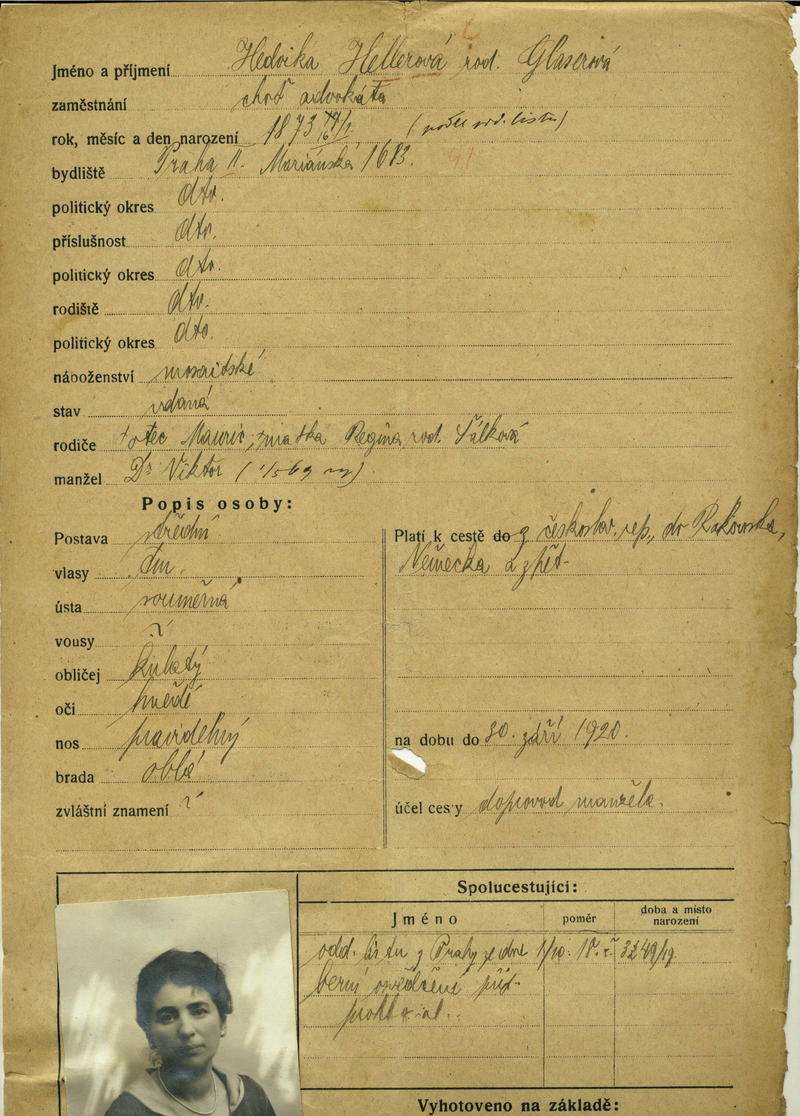 Jméno a příjmení Hedvika Hellerová rod. Glaserová
zaměstnání choť advokáta
rok, měsíc a den narození 1873 (podle rod. listu)
bydliště Praha II. Mariánská 1613.
politický okres dto.
příslušnost dto.
politický okres dto.
rodiště dto.
politický okres dto.
náboženství mosaitské
stav vdaná
rodiče otec Mauric, matka Regina rod.
manžel Dr Viktor
Popis osoby:
Postava střední
vlasy tm.
ústa souměrná
vousy
obličej kulatý
oči hnědé
nos pravidelný
brada oblá
zvláštní znamení
Platí k cestě do z českoslov. rep., do Rakouska,
Německa a zpět
na dobu do 30. září 1920.
účel cesty doprovod manžela.
Spolucestující:
Jméno poměr doba a místo narození
odd. listu z Prahy ze dne 3249/19
berní osvědčení
Vyhotoveno na základě: